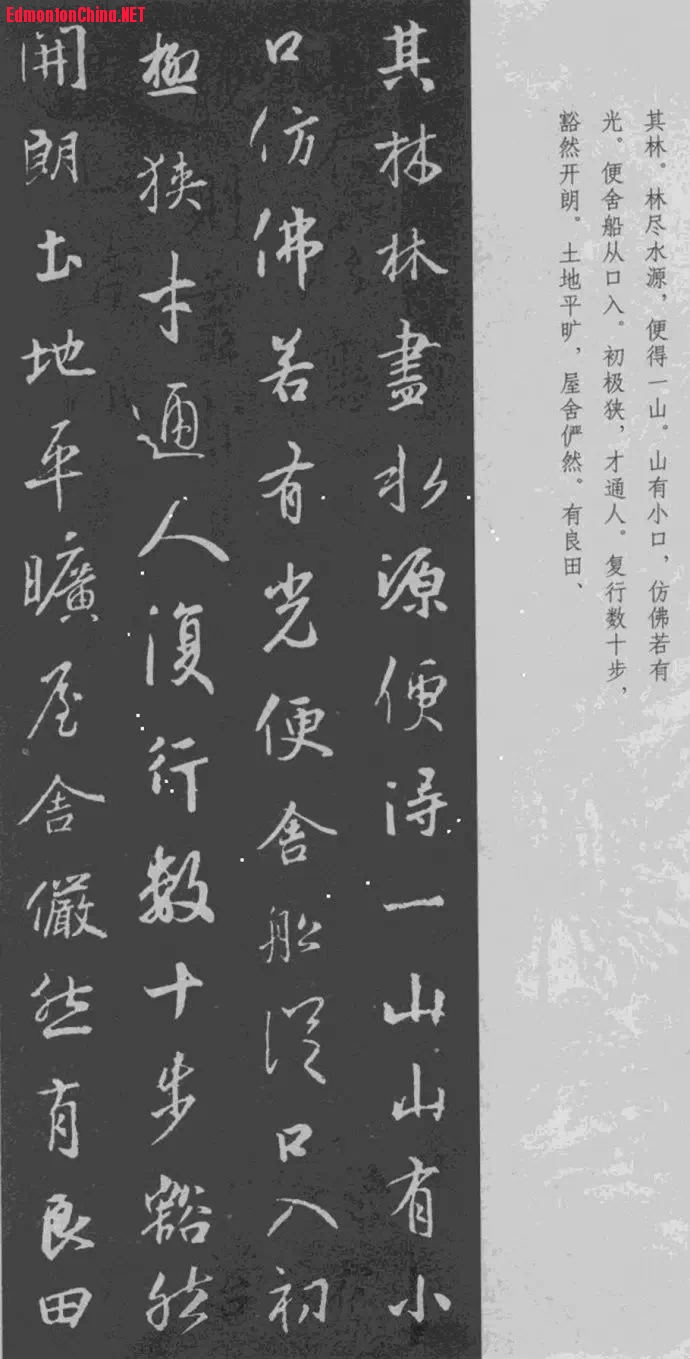 EdmontonChina.NET
其林。林尽水源，便得一山。山有小口，仿佛若有
光。便舍船从口入。初极狭，才通人。复行数十步，
豁然开朗。土地平旷，屋舍俨然。有良田、
其林林盡水源便得一山山有小
口仿佛若有光便舍船從口入初
極狹才通人復行數十步豁然
開朗土地平曠屋舍儼然有良田